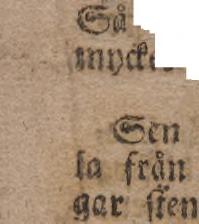 Så
Sen
la från
gar sten